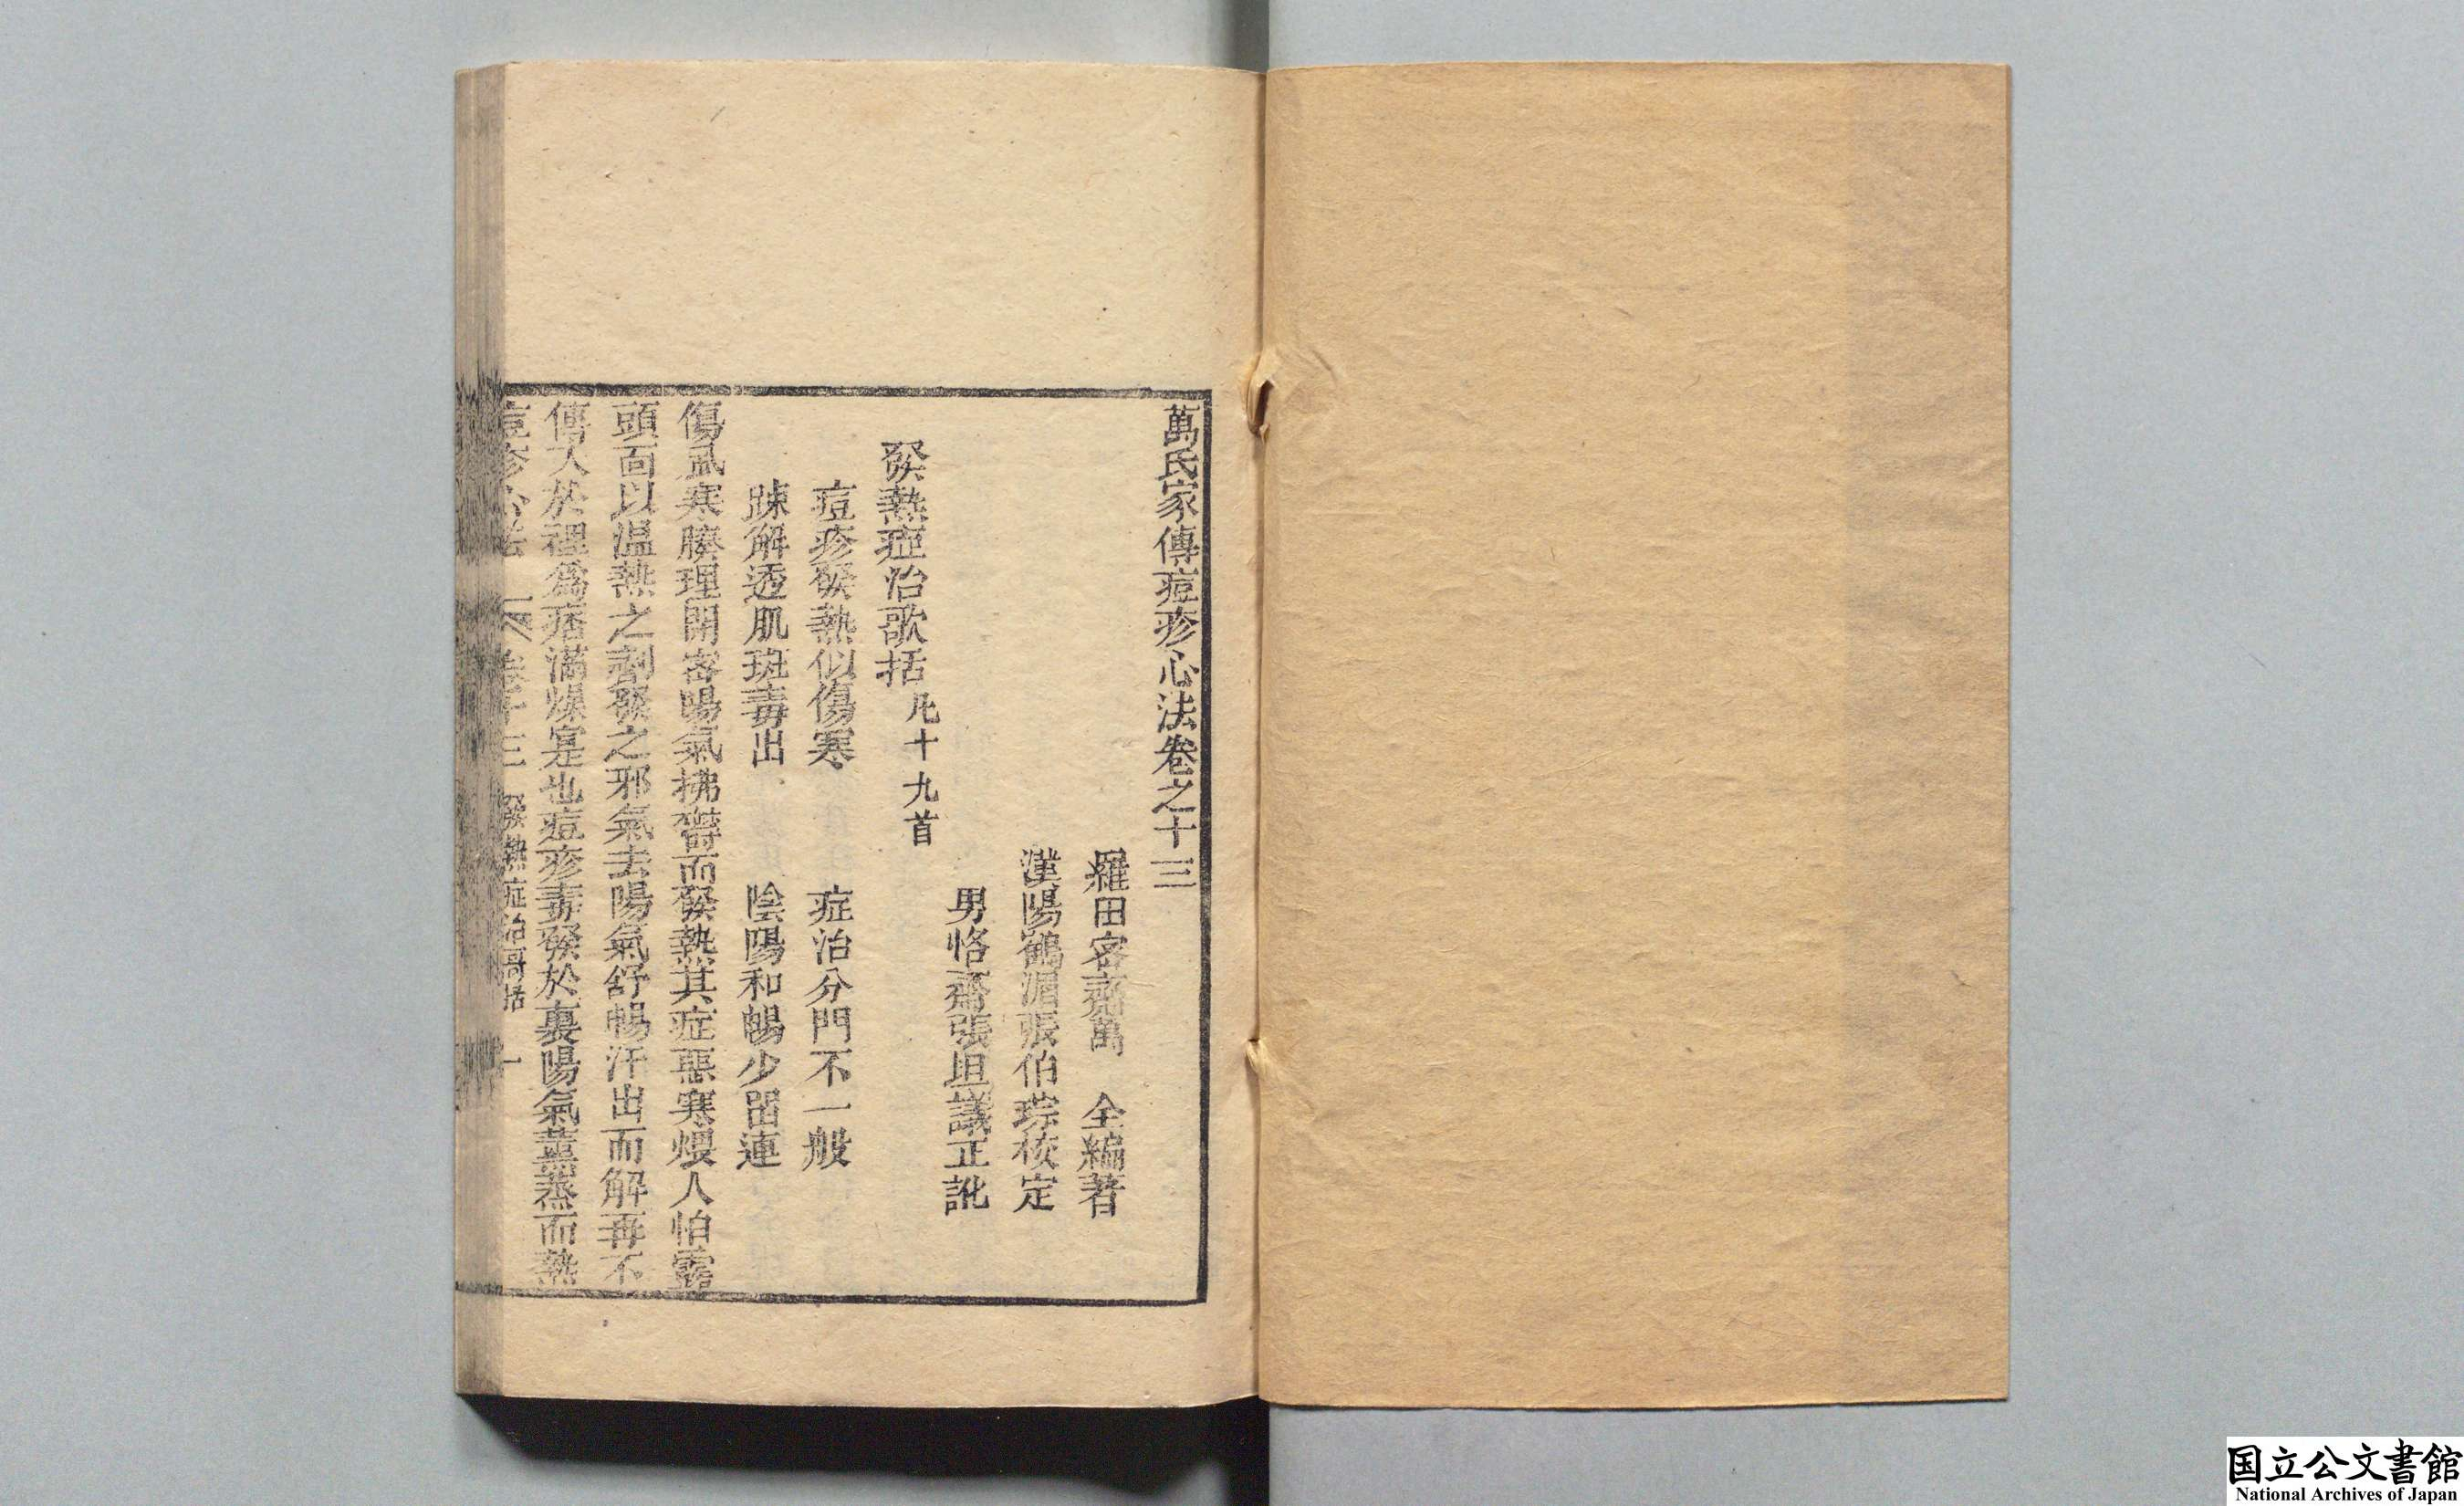 萬氏家傳痘疹心法卷之十三
羅田密齋萬　全編著
漢陽鶴湄張伯琮校定
男恪齋張坦議正訛
發熱症治歌括 凢十九首
痘疹發熱似傷寒　症治分門不一般
踈解透肌斑毒出　陰陽和暢少留連
傷風寒腠理開密陽氣拂欝而發熱其症惡寒煨人怕露
頭面以温熱之劑發之邪氣去陽氣舒暢汗出而解再不
傳入於裡為痞滿燥寔也痘疹毒發於裏陽氣薰蒸而熱
痘疹心法　卷十三　發熱症治歌括　一
国立公文書館
National Archives of Japan